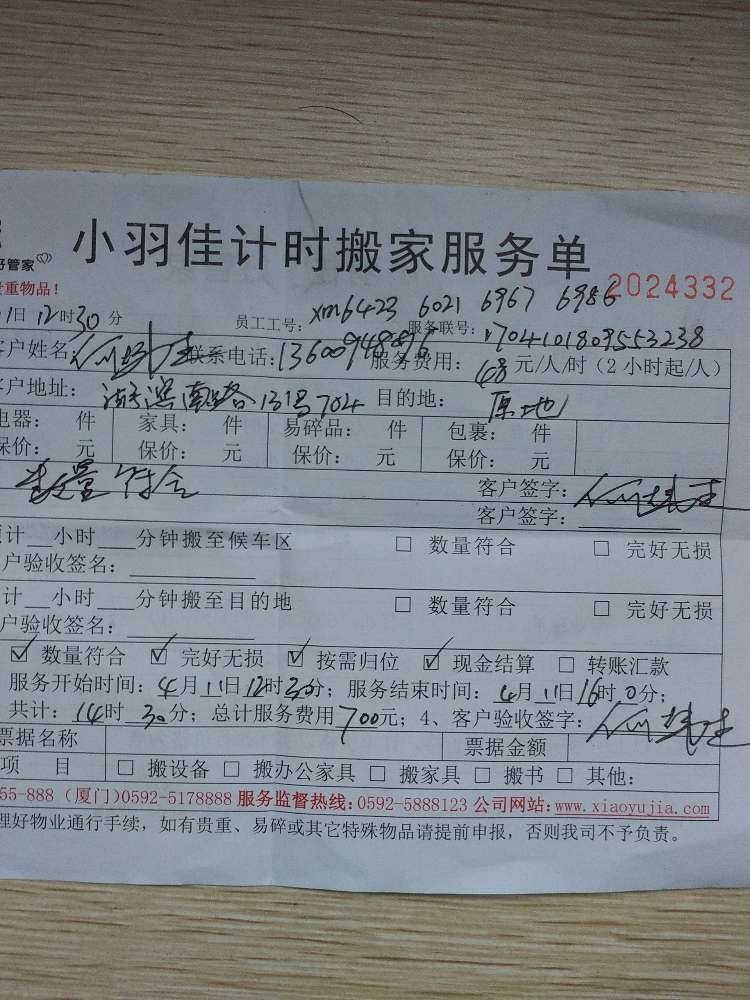 好管家
小羽佳计时搬家服务单
2024332
贵重物品！
1日12时30分 员工工号：xm6423 6021 6967 6986
服务联号：1704101809553238
客户姓名： 联系电话：13600948896 服务费用：48元/人/时（2小时起/人）
客户地址：湖滨南路131号704 目的地：原地
电器： 件 家具： 件 易碎品： 件 包裹： 件
保价： 元 保价： 元 保价： 元 保价： 元
数量符合 客户签字：
客户签字：
预计__小时___分钟搬至候车区 □ 数量符合 □ 完好无损
客户验收签名：
预计__小时___分钟搬至目的地 □ 数量符合 □ 完好无损
客户验收签名：
☑ 数量符合 ☑ 完好无损 ☑ 按需归位 ☑ 现金结算 □ 转账汇款
服务开始时间：4月11日12时30分；服务结束时间：4月11日16时0分；
共计：14时30分；总计服务费用700元；4、客户验收签字：
票据名称 票据金额
项 目 □ 搬设备 □ 搬办公家具 □ 搬家具 □ 搬书 □ 其他：
55-888（厦门）0592-5178888 服务监督热线：0592-5888123 公司网站：www.xiaoyujia.com
理好物业通行手续，如有贵重、易碎或其它特殊物品请提前申报，否则我司不予负责。